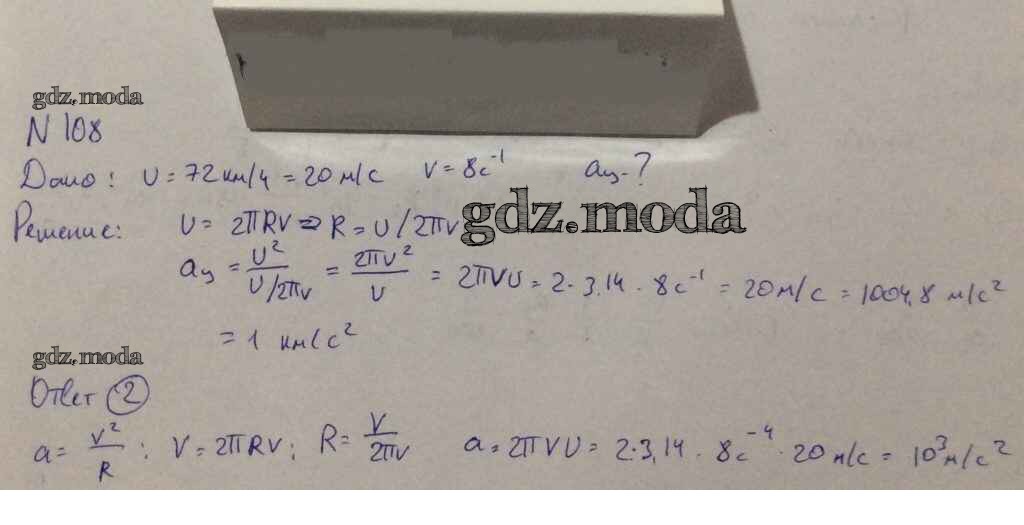 gdz.moda
N 108
Дано: υ = 72 км/ч = 20 м/с ν = 8с⁻¹ aц-?
gdz.moda
Решение: υ = 2πRν => R = υ/2πν
aц = υ²/(υ/2πν) = 2πυ²/υ = 2πνυ = 2·3,14 · 8с⁻¹ = 20 м/с = 1004,8 м/с²
= 1 км/с²
gdz.moda
Ответ 2
a = v²/R ; V = 2πRν; R = V/2πν a = 2πνυ = 2·3,14 · 8с⁻⁴ · 20 м/с = 10³ м/с²